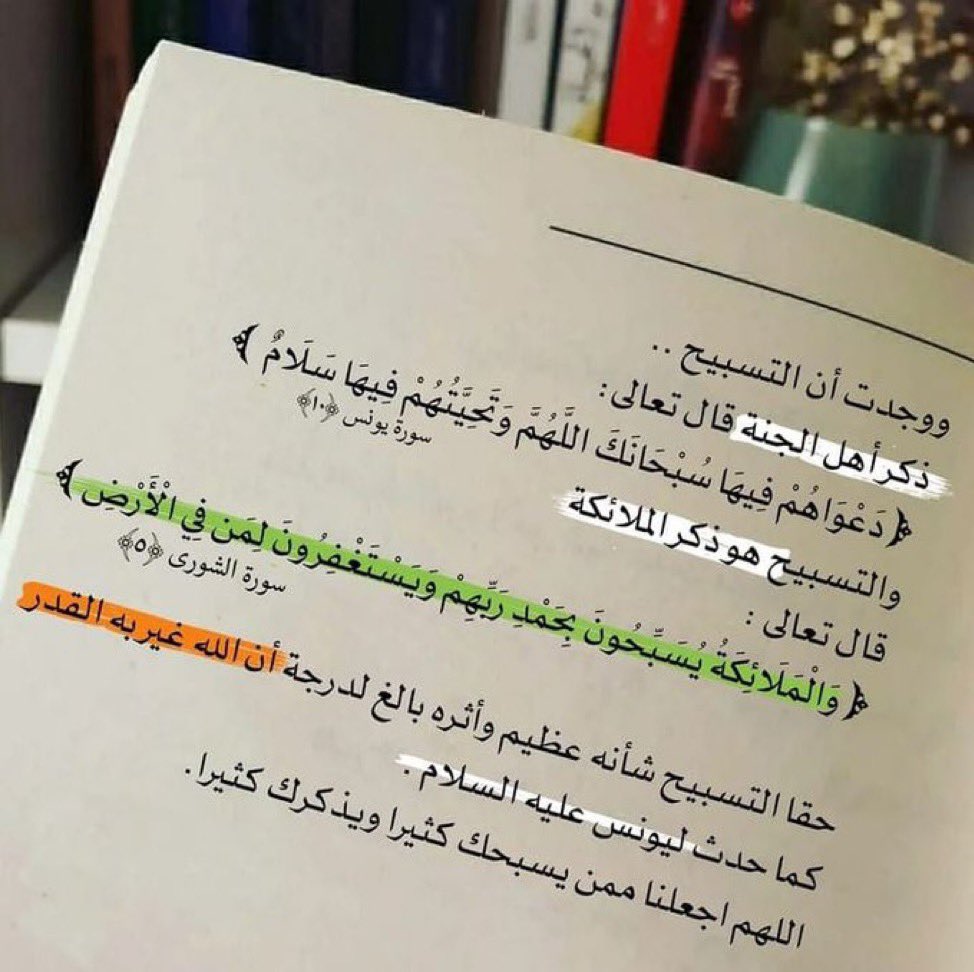 ووجدت أن التسبيح ..
ذكر أهل الجنة قال تعالى:
﴿ دَعْوَاهُمْ فِيهَا سُبْحَانَكَ اللَّهُمَّ وَتَحِيَّتُهُمْ فِيهَا سَلَامٌ ﴾
سورة يونس ﴿١٠﴾
والتسبيح هو ذكر الملائكة
قال تعالى :
﴿ وَالْمَلَائِكَةُ يُسَبِّحُونَ بِحَمْدِ رَبِّهِمْ وَيَسْتَغْفِرُونَ لِمَن فِي الْأَرْضِ ﴾
سورة الشورى ﴿٥﴾
حقا التسبيح شأنه عظيم وأثره بالغ لدرجة أن الله غير به القدر
كما حدث ليونس عليه السلام .
اللهم اجعلنا ممن يسبحك كثيرا ويذكرك كثيرا.